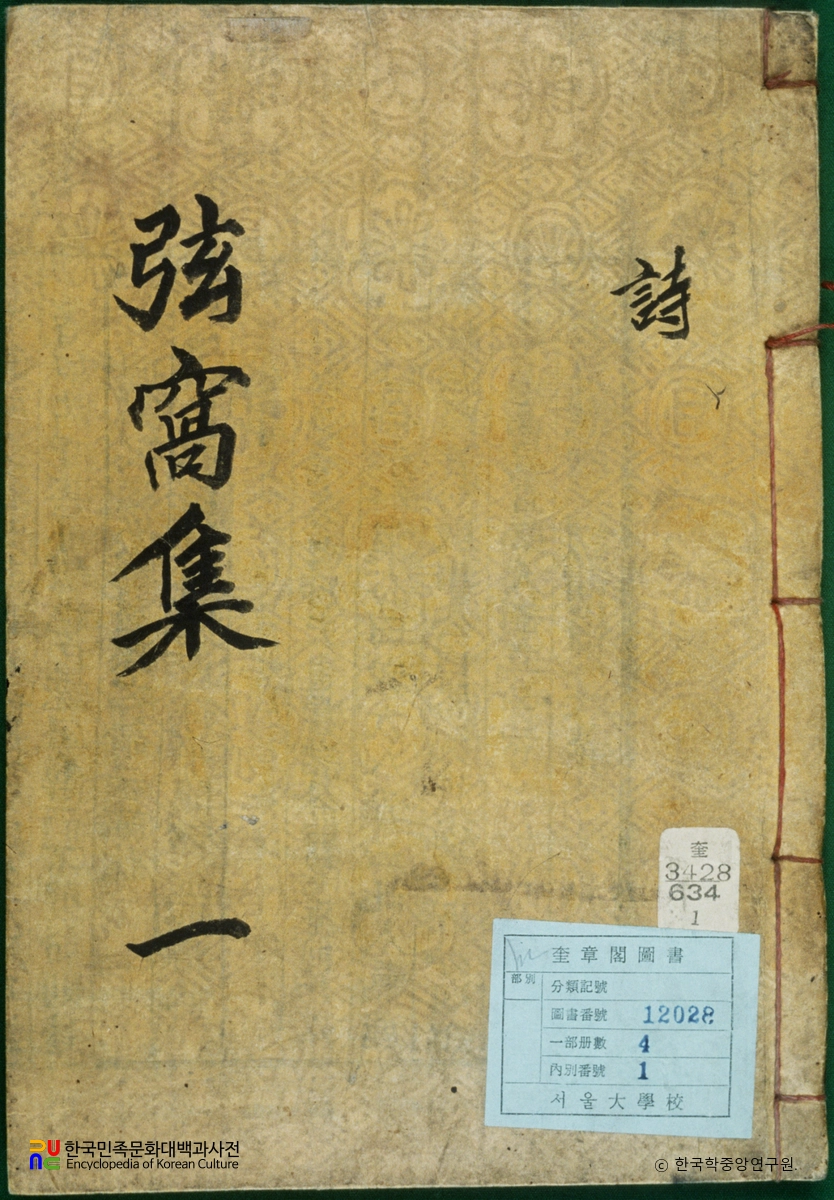 詩
弦窩集
一
奎
3428
634
1
奎章閣圖書
部別
分類記號
圖書番號 12028
一部册數 4
內別番號 1
서울大學校
한국민족문화대백과사전
Encyclopedia of Korean Culture
ⓒ 한국학중앙연구원.